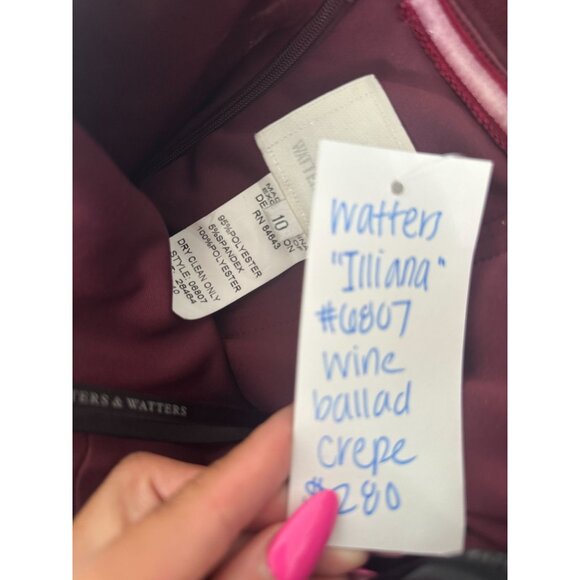 Watters
"Illiana"
#6807
wine
ballad
crepe
$280
WATTERS
10
RN 84643
95%POLYESTER
5%SPANDEX
100%POLYESTER
DRY CLEAN ONLY
STYLE: 06807
TERS & WATTERS